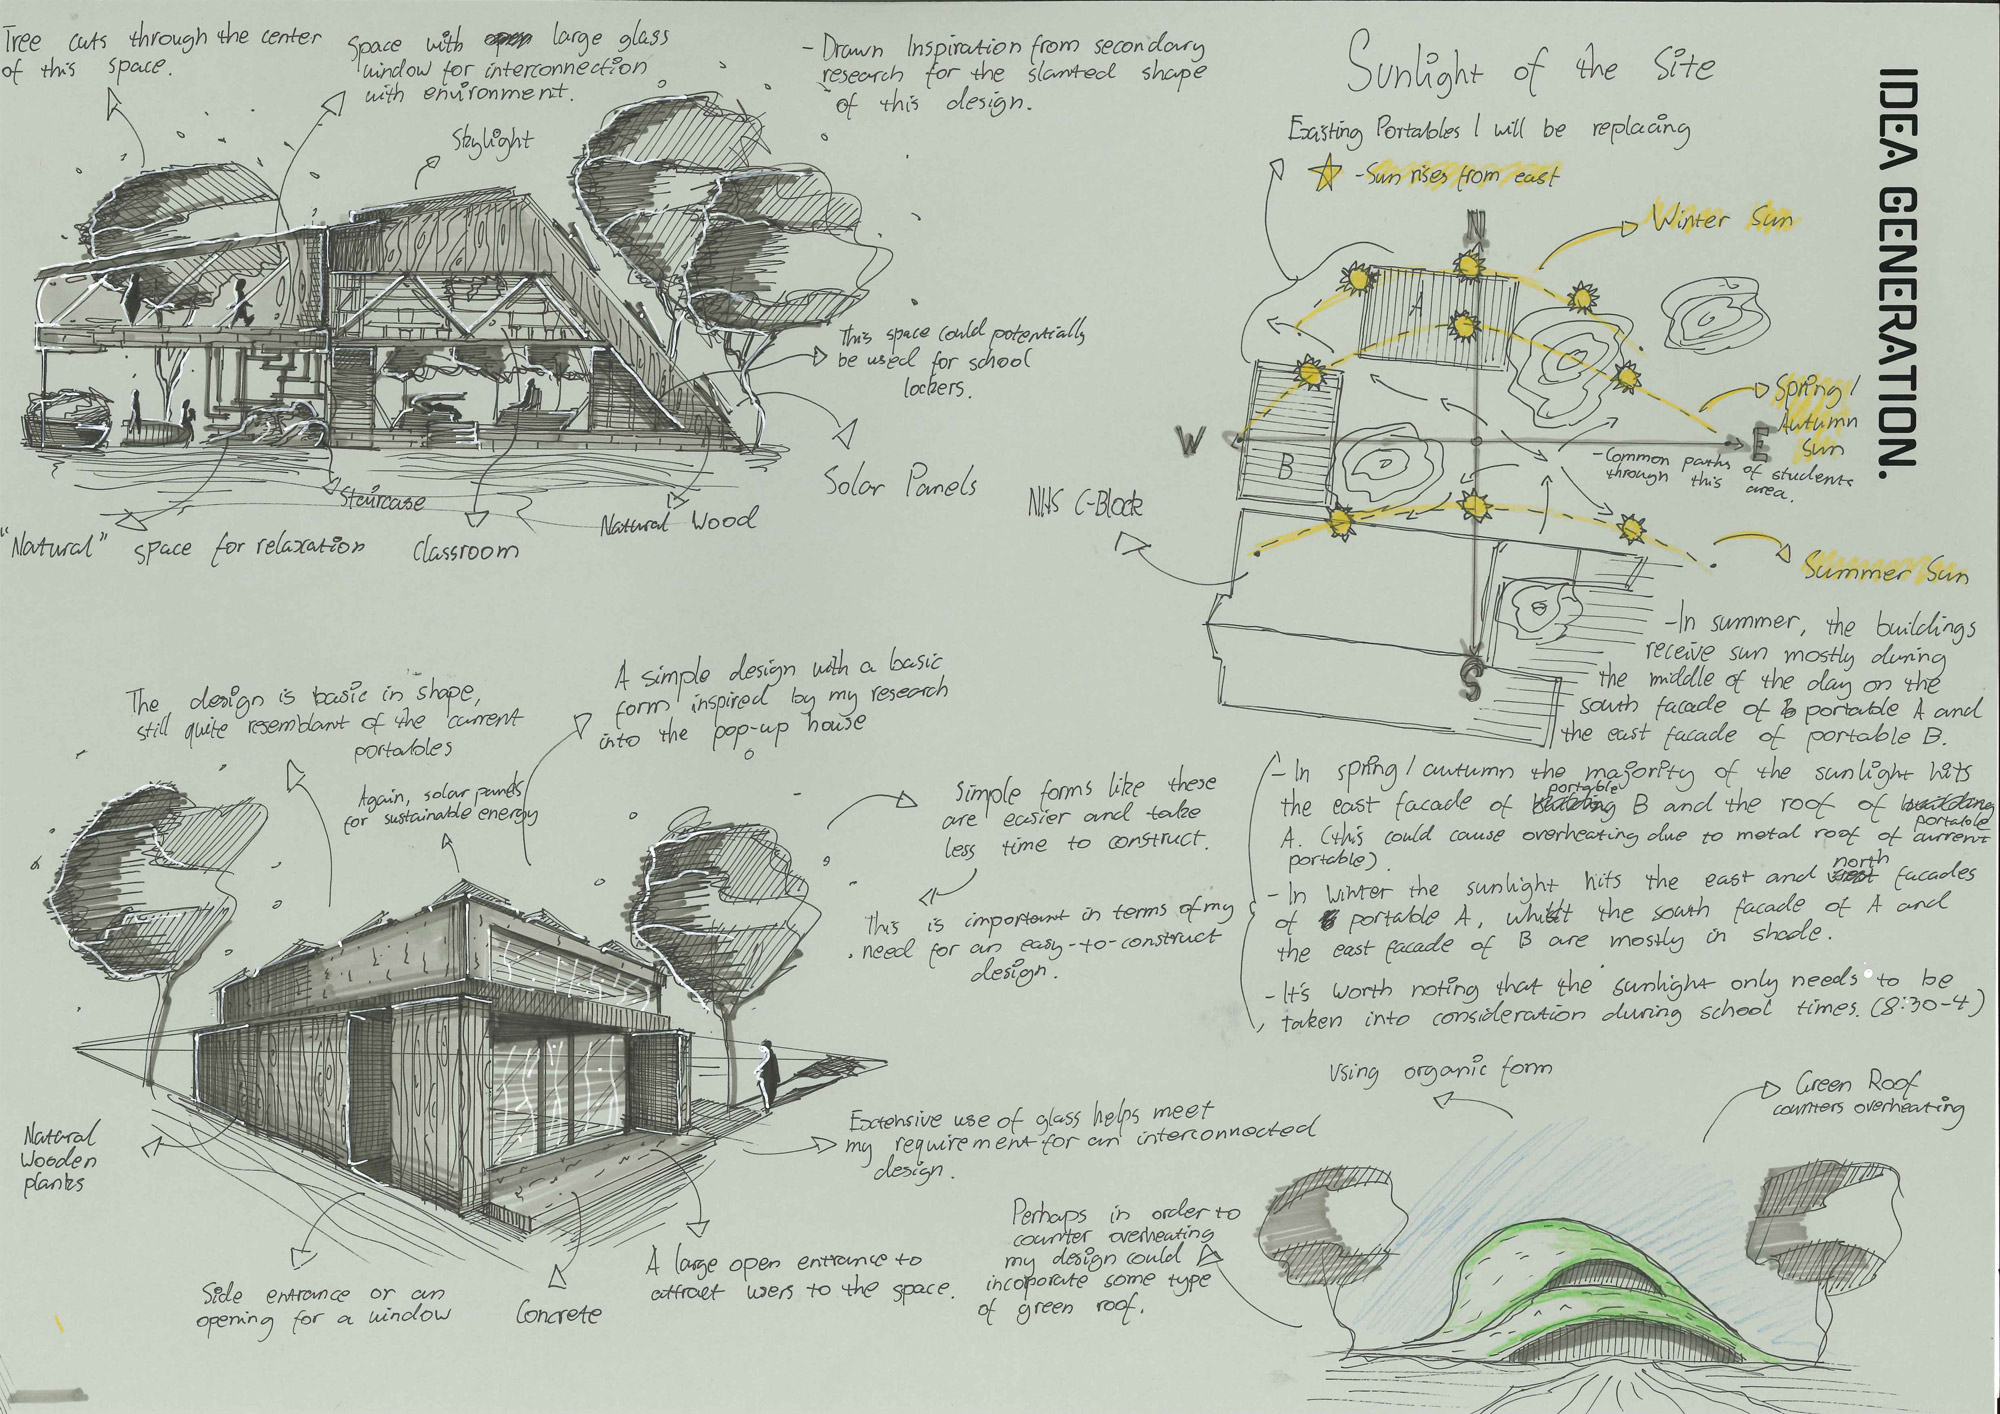 Tree cuts through the center
of this space.
Space with large glass
window for interconnection
with environment.
Skylight
- Drawn Inspiration from secondary
research for the slanted shape
of this design.
This space could potentially
be used for school
lockers.
Solar Panels
Staircase
Natural Wood
"Natural" space for relaxation
Classroom
Sunlight of the Site
IDEA GENERATION.
Existing Portables I will be replacing
- Sun rises from east
N
Winter Sun
A
Spring/
Autumn
Sun
W
E
B
- Common paths of students
through this area.
NHS C-Block
Summer Sun
S
- In summer, the buildings
receive sun mostly during
the middle of the day on the
south facade of portable A and
the east facade of portable B.
- In spring / autumn the majority of the sunlight hits
the east facade of portable B and the roof of portable
A. (this could cause overheating due to metal roof of current
portable).
- In Winter the sunlight hits the east and north facades
of portable A, whilst the south facade of A and
the east facade of B are mostly in shade.
- It's worth noting that the sunlight only needs to be
taken into consideration during school times. (8:30-4)
The design is basic in shape,
still quite resemblant of the current
portables
Again, solar panels
for sustainable energy
A simple design with a basic
form inspired by my research
into the pop-up house
Simple forms like these
are easier and take
less time to construct.
This is important in terms of my
need for an easy-to-construct
design.
Natural
Wooden
planks
Extensive use of glass helps meet
my requirement for an interconnected
design.
Side entrance or an
opening for a window
Concrete
A large open entrance to
attract users to the space.
Using organic form
Green Roof
counters overheating
Perhaps in order to
counter overheating
my design could
incorporate some type
of green roof.